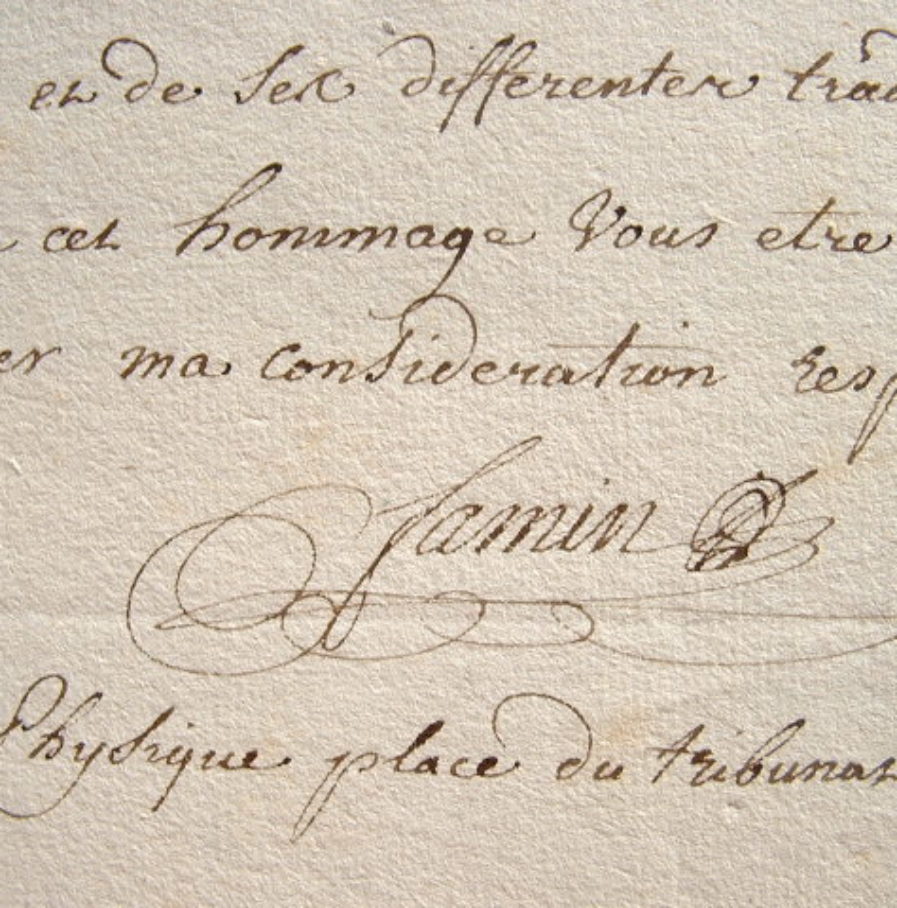 et de ses differentes
cet hommage Vous etre
ma consideration
Jamin
Physique place du tribunat